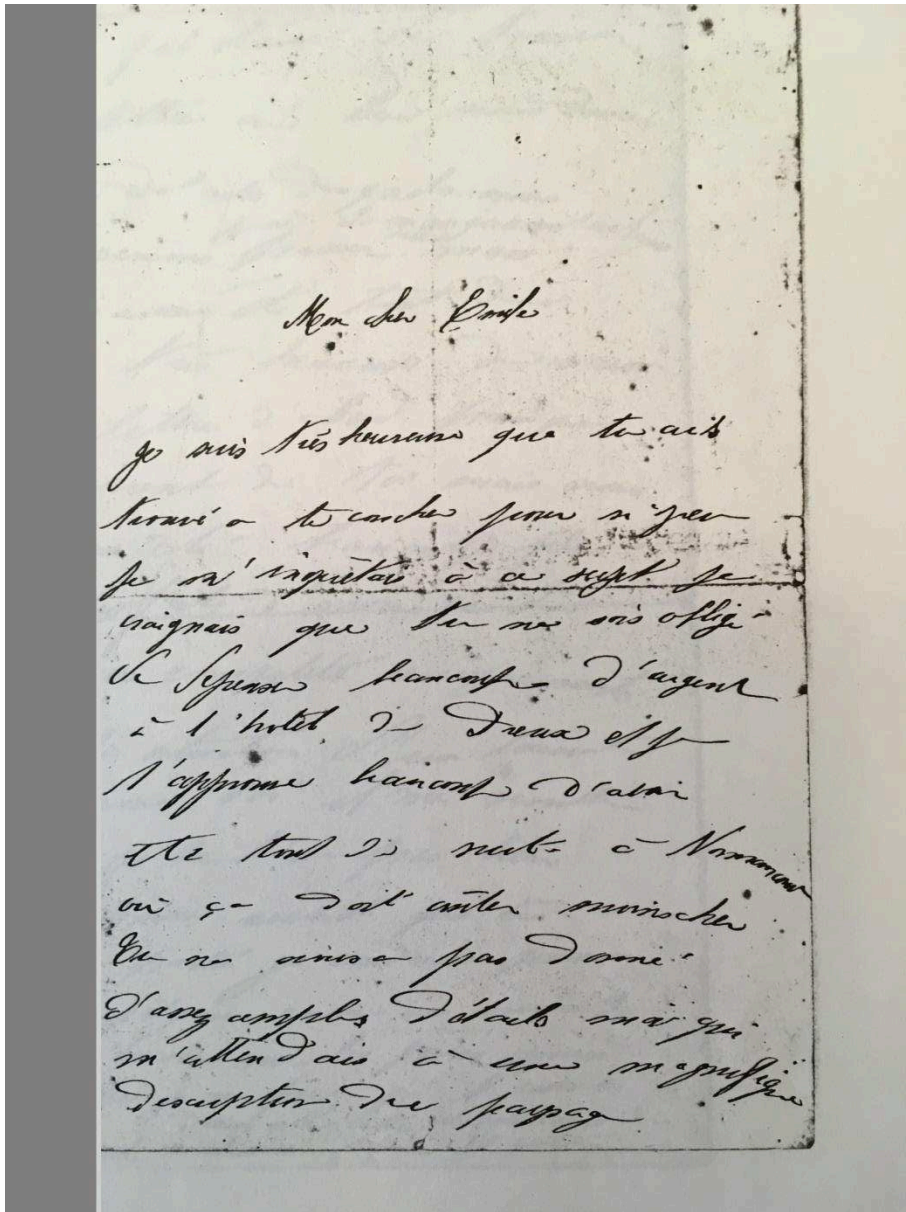 Mon cher Emile
Je suis très heureuse que tu ais
trouvé a te coucher pour si peu
je m'inquiétais à ce sujet je
craignais que tu ne sois obligé
de dépenser beaucoup d'argent
à l'hotel de Dreux et je
t'approuve beaucoup d'avoir
été tout de suite à Nonancourt
où ça doit coûter moins cher
Tu ne nous a pas donné
d'assez amples détails moi qui
m'attendais à une magnifique
description du paysage